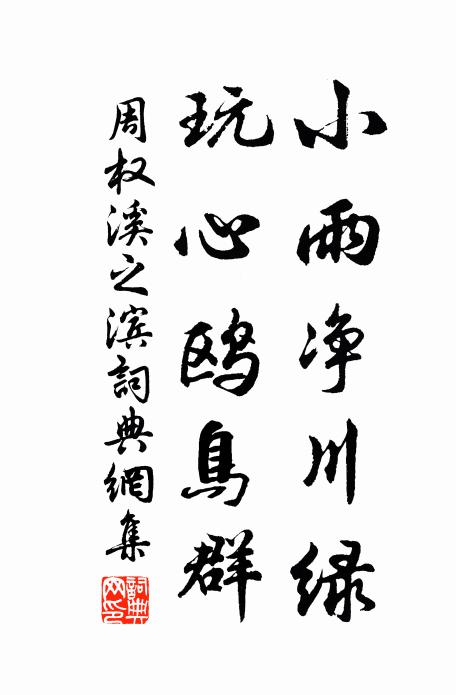 小雨净川绿
玩心鸥鳥群
周权溪之滨詞典網集
詞典網印